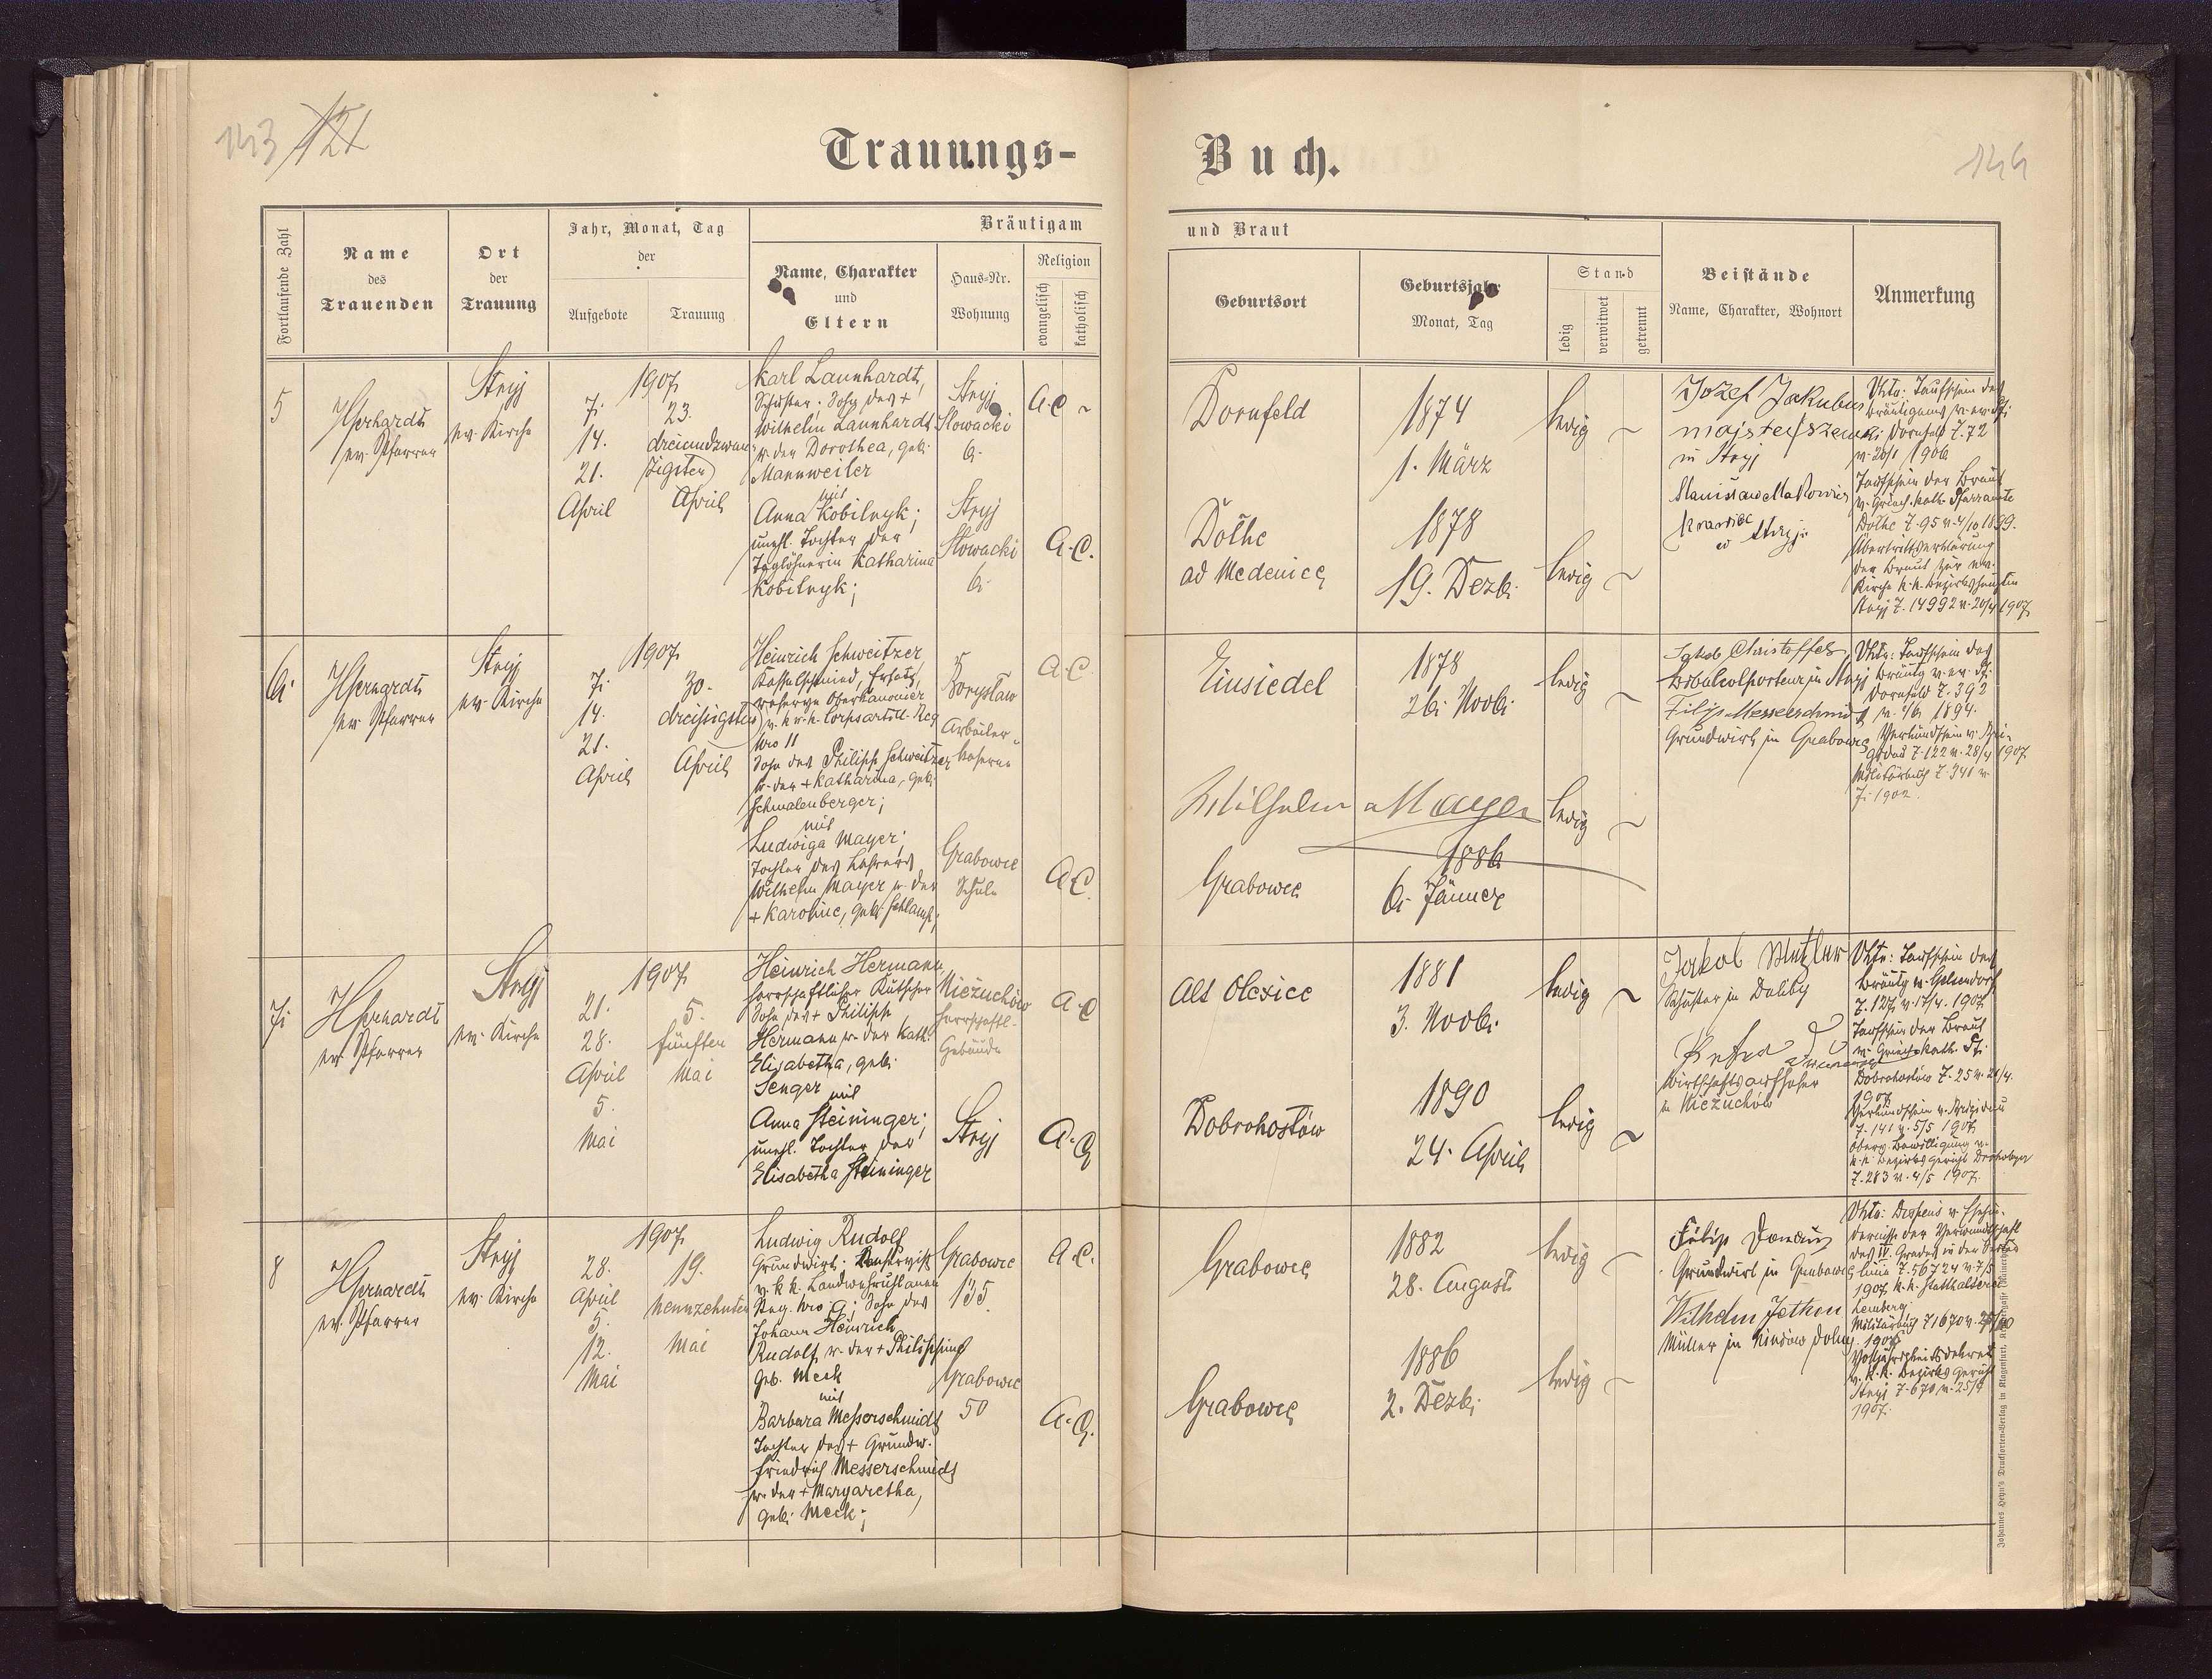 143 121
Trauungs-
Buch.
144
Fortlaufende Zahl
Name
des
Trauenden
Ort
der
Trauung
Jahr, Monat, Tag
der
Aufgebote
Trauung
Bräutigam
und Braut
Name, Charakter
und
Eltern
Haus-Nr.
Wohnung
Religion
evangelisch
katholisch
Geburtsort
Geburtsjahr
Monat, Tag
Stand
ledig
verwitwet
getrennt
Beistände
Name, Charakter, Wohnort
Anmerkung
5
ev. Pfarrer
Stryj
ev. Kirche
1907
7.
14.
21.
April
23.
dreiundzwan-
zigsten
April
Karl Launhardt,
Schuster; Sohn des +
Wilhelm Launhardt
u. der Dorothea, geb.
Mannweiler
mit
Anna Kobilnyk;
unehl. Tochter der
Taglöhnerin Katharina
Kobilnyk;
Stryj
Slowacki
6.
Stryj
Slowacki
6.
A.C.
A.C.
Dornfeld
1874
1. März
ledig
Dołhe
ad Medenice
1878
19. Dezb.
ledig
Józef Jakubus
majster szewski
in Stryj
krawiec
w Stryju
Urk.: Taufschein des
Bräutigams v. ev. Pf.
Dornfeld Z. 72
v. 20/1 1906
Taufschein der Braut
v. Griech. kath. Pfarramte
Dołhe Z. 95 v. 4/10 1899.
Übertrittserklärung
der Braut zur ev.
Kirche k. k. Bezirkshauptm.
Stryj Z. 14992 v. 20/4 1907.
6.
ev. Pfarrer
Stryj
ev. Kirche
1907
7.
14.
21.
April
30.
dreißigsten
April
Heinrich Schweitzer
Kesselschmied, Ersatz-
reserve Oberkanonier
v. k. u. k. Corpsartill. Reg
Nro 11
Sohn des Philipp Schweitzer
u. der + Katharina, geb.
Schmalenberger;
mit
Ludwiga Mayer;
Tochter des Lehrers
Wilhelm Mayer u. der
+ Karoline, geb. Schlamp;
Borysław
Arbeiter-
kaserne
Grabowce
Schule
A.C.
A.C.
Einsiedel
1878
26. Novb.
ledig
Wilhelm Mayer
ledig
Grabowce
1886
6. Jänner
Jakob Christoffel
Bibelkolporteur in Stryj
Filip Messerschmidt
Grundwirt in Grabowce
Urk.: Taufschein des
Bräutig v. ev. Pf.
Dornfeld Z. 392
1894.
Verkündschein v. Bri-
gidau Z. 122 v. 28/4 1907.
Z. 341 v.
1902.
7.
ev. Pfarrer
Stryj
ev. Kirche
1907
21.
28.
April
5.
Mai
5.
fünften
Mai
Heinrich Hermann,
herrschaftlicher Kutscher
Sohn des + Philipp
Hermann u. der kath.
Elisabetha, geb.
Senger
mit
Anna Steininger;
unehl. Tochter der
Elisabetha Steininger
Nieżuchów
herrschaftl.
Gebäude
Stryj
A.C.
A.C.
Alt Olexice
1881
3. Novb.
ledig
Dobrohostów
1890
24. April
ledig
Jakob Metzler
Schuster in Duliby
Wirtschaftsaufseher
in Nieżuchów
Urk.: Taufschein des
Bräutig v. Gelsendorf
Z. 127 v. 17/4. 1907.
Taufschein der Braut
v. Griech. kath. Pf.
Dobrohostów Z. 25 v. 21/4.
1907.
Verkündschein v. Brigidau
Z. 141 v. 5/5 1907.
Bewilligung v.
k. k. Bezirksgericht Drohobycz
Z. 283 v. 4/5 1907.
8
ev. Pfarrer
Stryj
ev. Kirche
1907
28.
April
5.
12.
Mai
19.
neunzehnten
Mai
Ludwig Rudolf
Grundwirt.
v. k. k. Landwehruhlanen
Reg. Nro 9; Sohn des
Johann Heinrich
Rudolf u. der + Philippine
geb. Meck
mit
Barbara Messerschmidt
Tochter des + Grundw.
Friedrich Messerschmidt
u. der + Margaretha,
geb. Meck;
Grabowce
135
Grabowce
50
A.C.
A.C.
Grabowce
1882
28. August
ledig
Grabowce
1886
2. Dezb.
ledig
Grundwirt in Grabowce
Wilhelm Jetten
Müller in
Urk: Dispens v. Ehehin-
dernisse der Verwandtschaft
des IV. Grades in der Seiten
linie Z. 56724 v. 7/5
1907 k. k. Statthalterei
Lemberg.
Volljährigkeitsdekret
v. k. k. Bezirks Gericht
Stryj Z. 670 v. 25/4
1907.